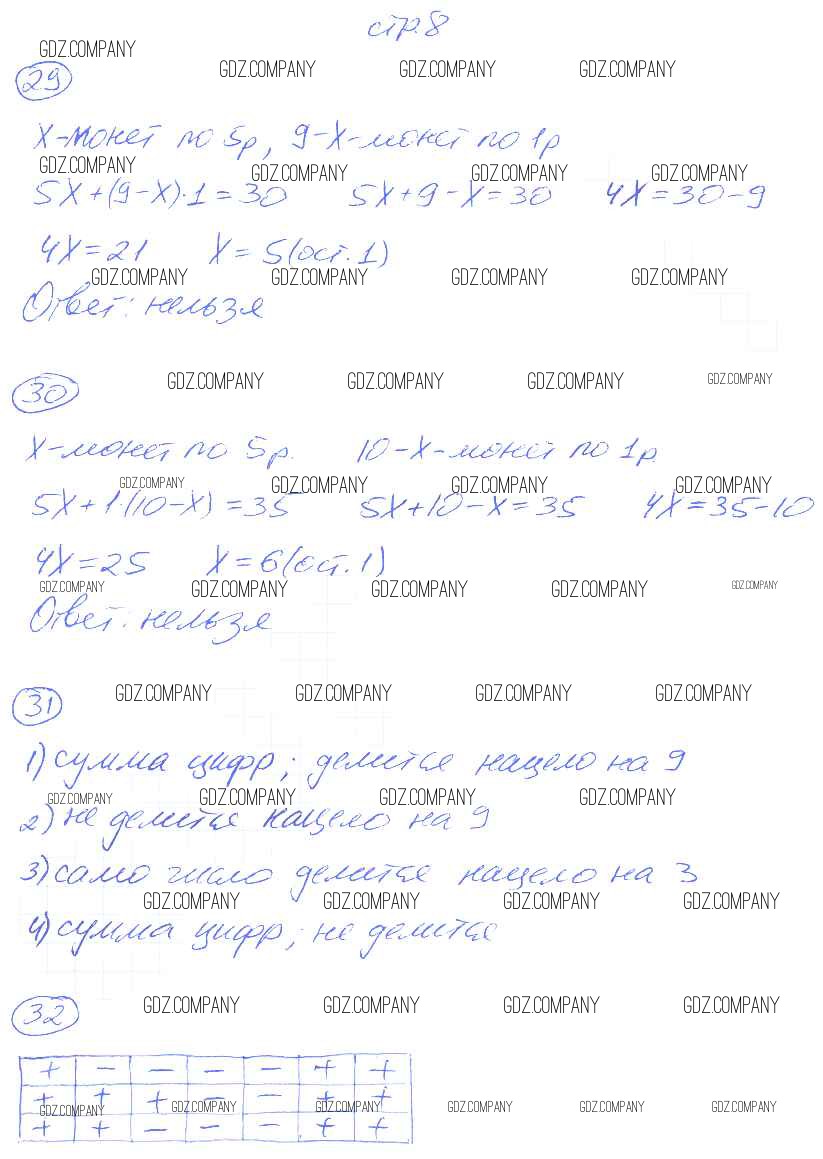 стр. 8
GDZ.COMPANY
GDZ.COMPANY GDZ.COMPANY GDZ.COMPANY
29
X-монет по 5р, 9-X-монет по 1р
GDZ.COMPANY GDZ.COMPANY GDZ.COMPANY GDZ.COMPANY
5X+(9-X)·1=30 5X+9-X=30 4X=30-9
4X=21 X=5(ост.1)
GDZ.COMPANY GDZ.COMPANY GDZ.COMPANY GDZ.COMPANY
Ответ: нельзя
GDZ.COMPANY GDZ.COMPANY GDZ.COMPANY GDZ.COMPANY
30
X-монет по 5р. 10-X-монет по 1р
GDZ.COMPANY GDZ.COMPANY GDZ.COMPANY GDZ.COMPANY
5X+1·(10-X)=35 5X+10-X=35 4X=35-10
4X=25 X=6(ост.1)
GDZ.COMPANY GDZ.COMPANY GDZ.COMPANY GDZ.COMPANY GDZ.COMPANY
Ответ: нельзя
GDZ.COMPANY GDZ.COMPANY GDZ.COMPANY GDZ.COMPANY
31
1) сумма цифр; делится нацело на 9
GDZ.COMPANY GDZ.COMPANY GDZ.COMPANY GDZ.COMPANY
2) не делится нацело на 9
3) само число делится нацело на 3
GDZ.COMPANY GDZ.COMPANY GDZ.COMPANY GDZ.COMPANY
4) сумма цифр; не делится
GDZ.COMPANY GDZ.COMPANY GDZ.COMPANY GDZ.COMPANY
32
+ - - - - + +
+ + + - - + +
GDZ.COMPANY GDZ.COMPANY GDZ.COMPANY GDZ.COMPANY GDZ.COMPANY GDZ.COMPANY
+ + - - - + +